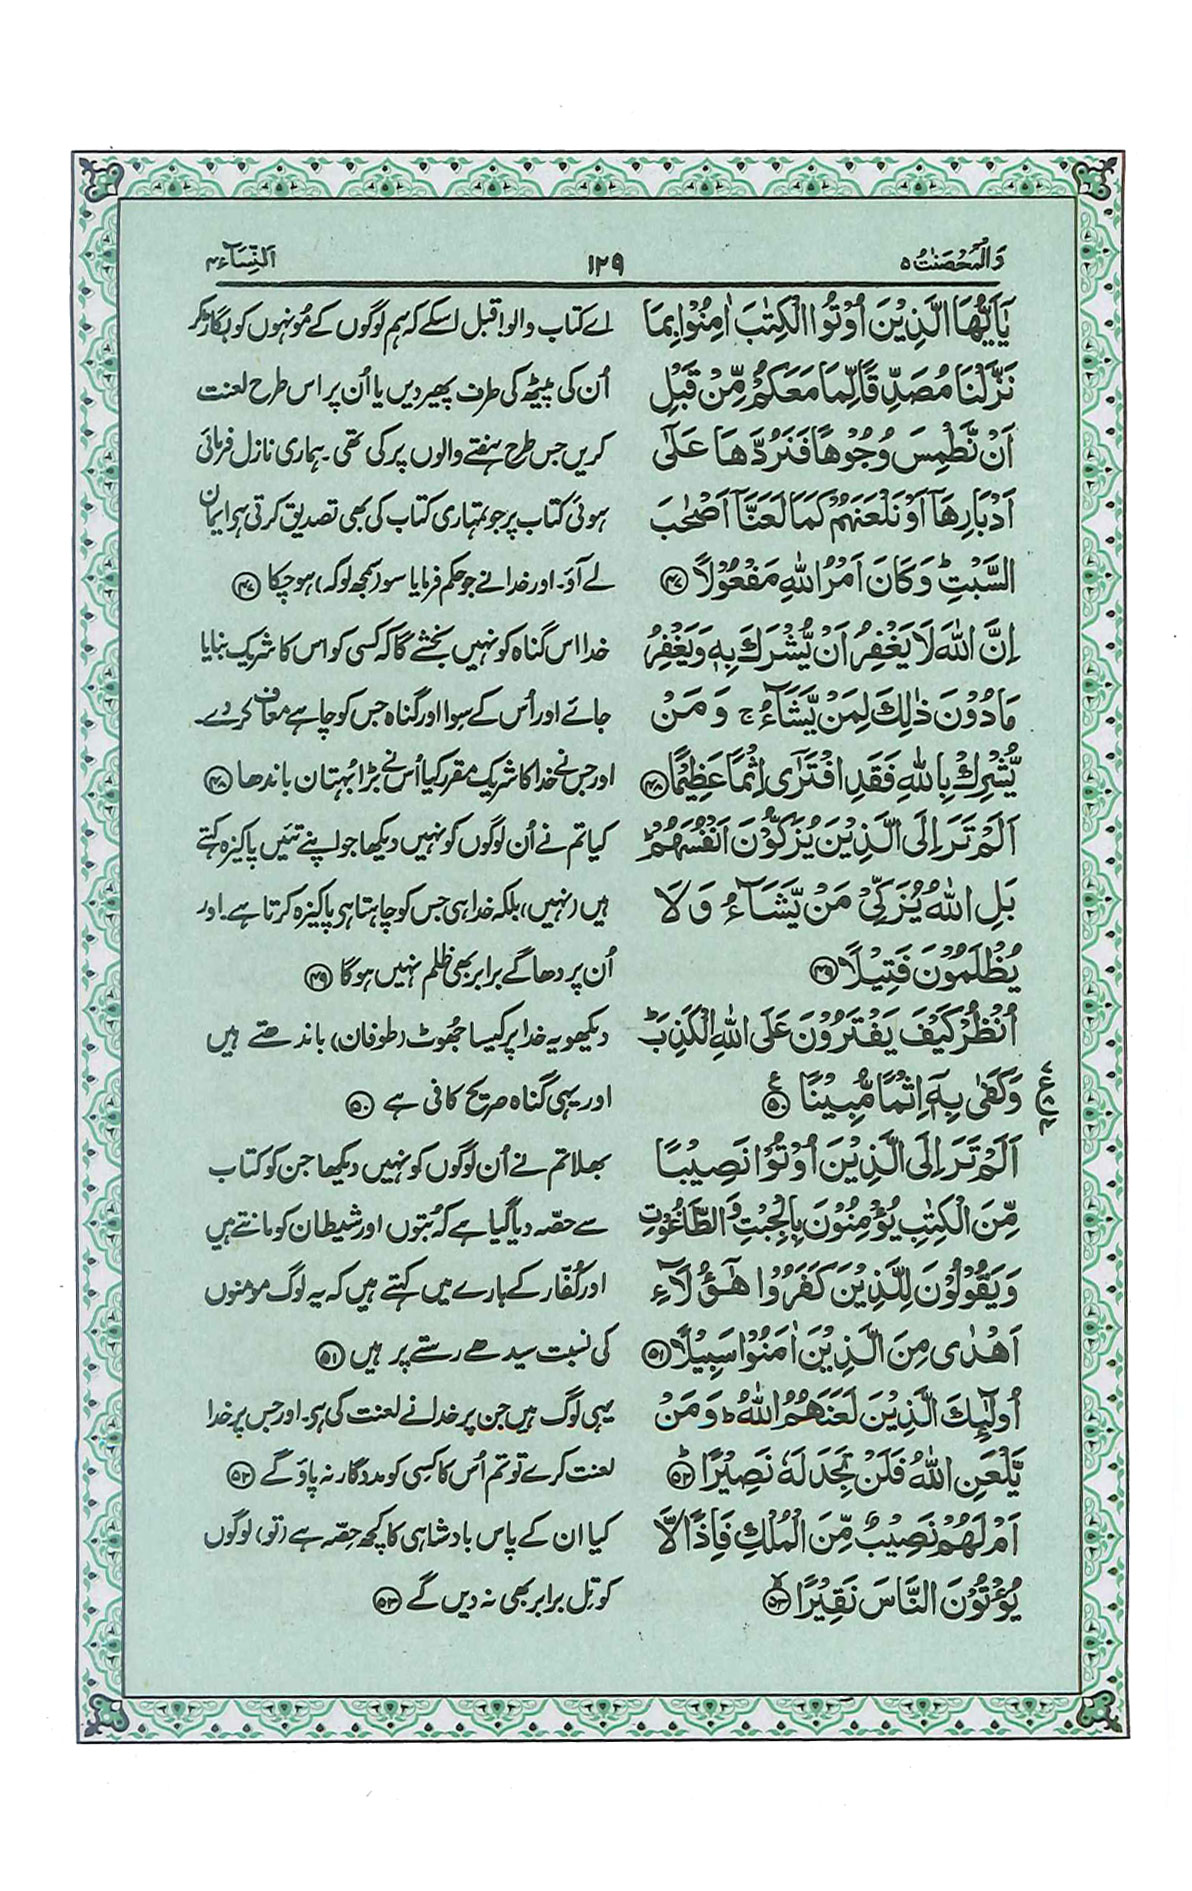 وَالْمُحْصَنٰتُ ۵
۱۲۹
اَلنِّسَآء ۴
يٰۤاَيُّهَا الَّذِيْنَ اُوْتُوا الْكِتٰبَ اٰمِنُوْا بِمَا
نَزَّلْنَا مُصَدِّقًا لِّمَا مَعَكُمْ مِّنْ قَبْلِ
اَنْ نَّطْمِسَ وُجُوْهًا فَنَرُدَّهَا عَلٰۤى
اَدْبَارِهَاۤ اَوْ نَلْعَنَهُمْ كَمَا لَعَنَّاۤ اَصْحٰبَ
السَّبْتِ ؕ وَكَانَ اَمْرُ اللّٰهِ مَفْعُوْلًا ۴۷
اِنَّ اللّٰهَ لَا يَغْفِرُ اَنْ يُّشْرَكَ بِهٖ وَيَغْفِرُ
مَا دُوْنَ ذٰلِكَ لِمَنْ يَّشَآءُ ۚ وَ مَنْ
يُّشْرِكْ بِاللّٰهِ فَقَدِ افْتَرٰۤى اِثْمًا عَظِيْمًا ۴۸
اَلَمْ تَرَ اِلَى الَّذِيْنَ يُزَكُّوْنَ اَنْفُسَهُمْ ؕ
بَلِ اللّٰهُ يُزَكِّيْ مَنْ يَّشَآءُ وَ لَا
يُظْلَمُوْنَ فَتِيْلًا ۴۹
اُنْظُرْ كَيْفَ يَفْتَرُوْنَ عَلَى اللّٰهِ الْكَذِبَ ؕ
وَكَفٰى بِهٖۤ اِثْمًا مُّبِيْنًا ۵۰
اَلَمْ تَرَ اِلَى الَّذِيْنَ اُوْتُوْا نَصِيْبًا
مِّنَ الْكِتٰبِ يُؤْمِنُوْنَ بِالْجِبْتِ وَ الطَّاغُوْتِ
وَ يَقُوْلُوْنَ لِلَّذِيْنَ كَفَرُوْا هٰۤؤُلَآءِ
اَهْدٰى مِنَ الَّذِيْنَ اٰمَنُوْا سَبِيْلًا ۵۱
اُولٰٓئِكَ الَّذِيْنَ لَعَنَهُمُ اللّٰهُ ؕ وَ مَنْ
يَّلْعَنِ اللّٰهُ فَلَنْ تَجِدَ لَهٗ نَصِيْرًا ۵۲
اَمْ لَهُمْ نَصِيْبٌ مِّنَ الْمُلْكِ فَاِذًا لَّا
يُؤْتُوْنَ النَّاسَ نَقِيْرًا ۵۳
اے کتاب والو! قبل اسکے کہ ہم لوگوں کے مُونہوں کو بگاڑ کر
اُن کی پیٹھ کی طرف پھیر دیں یا اُن پر اس طرح لعنت
کریں جس طرح ہفتے والوں پر کی تھی۔ ہماری نازل فرمائی
ہوئی کتاب پر جو تمہاری کتاب کی بھی تصدیق کرتی ہی ایمان
لے آؤ۔ اور خدا نے جو حکم فرمایا سو (سمجھ لو کہ) ہو چکا ۴۷
خدا اس گناہ کو نہیں بخشے گا کہ کسی کو اس کا شریک بنایا
جائے اور اُس کے سوا اور گناہ جس کو چاہے معاف کر دے۔
اور جس نے خدا کا شریک مقرر کیا اُس نے بڑا بُہتان باندھا ۴۸
کیا تم نے اُن لوگوں کو نہیں دیکھا جو اپنے تئیں پاکیزہ کہتے
ہیں (نہیں) بلکہ خدا ہی جس کو چاہتا ہی پاکیزہ کرتا ہے۔ اور
اُن پر دھاگے برابر بھی ظلم نہیں ہو گا ۴۹
دیکھو یہ خدا پر کیسا جُھوٹ (طوفان) باندھتے ہیں
اور یہی گناہ صریح کافی ہے ۵۰
بھلا تم نے اُن لوگوں کو نہیں دیکھا جن کو کتاب
سے حصّہ دیا گیا ہے کہ بُتوں اور شیطان کو مانتے ہیں
اور کُفّار کے بارے میں کہتے ہیں کہ یہ لوگ مومنوں
کی نسبت سیدھے رستے پر ہیں ۵۱
یہی لوگ ہیں جن پر خدا نے لعنت کی ہی۔ اور جس پر خدا
لعنت کرے تو تم اُس کا کسی کو مددگار نہ پاؤ گے ۵۲
کیا ان کے پاس بادشاہی کا کچھ حِصّہ ہے (تو) لوگوں
کو تِل برابر بھی نہ دیں گے ۵۳